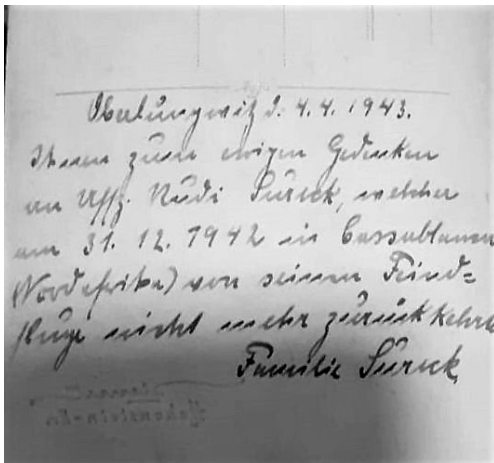 Oberlungwitz d. 4.4.1943.
Ihnen zum ewigen Gedenken
an Uffz. Rudi Sureck, welcher
am 31. 12. 1942 in Cassablanca
(Nordafrika) von seinen Feind=
fluge nicht mehr zurückkehrte
Familie Sureck
Hohenstein-Er